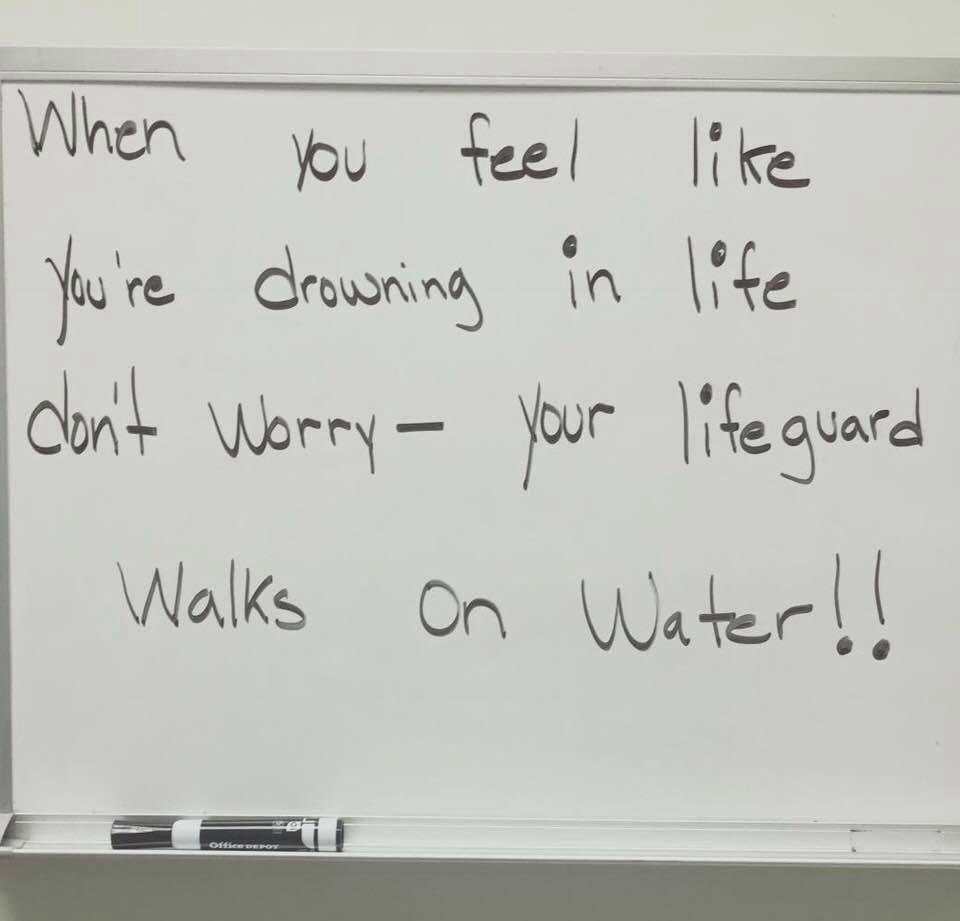 When you feel like
you're drowning in life
don't worry – your lifeguard
Walks on Water!!
Office DEPOT